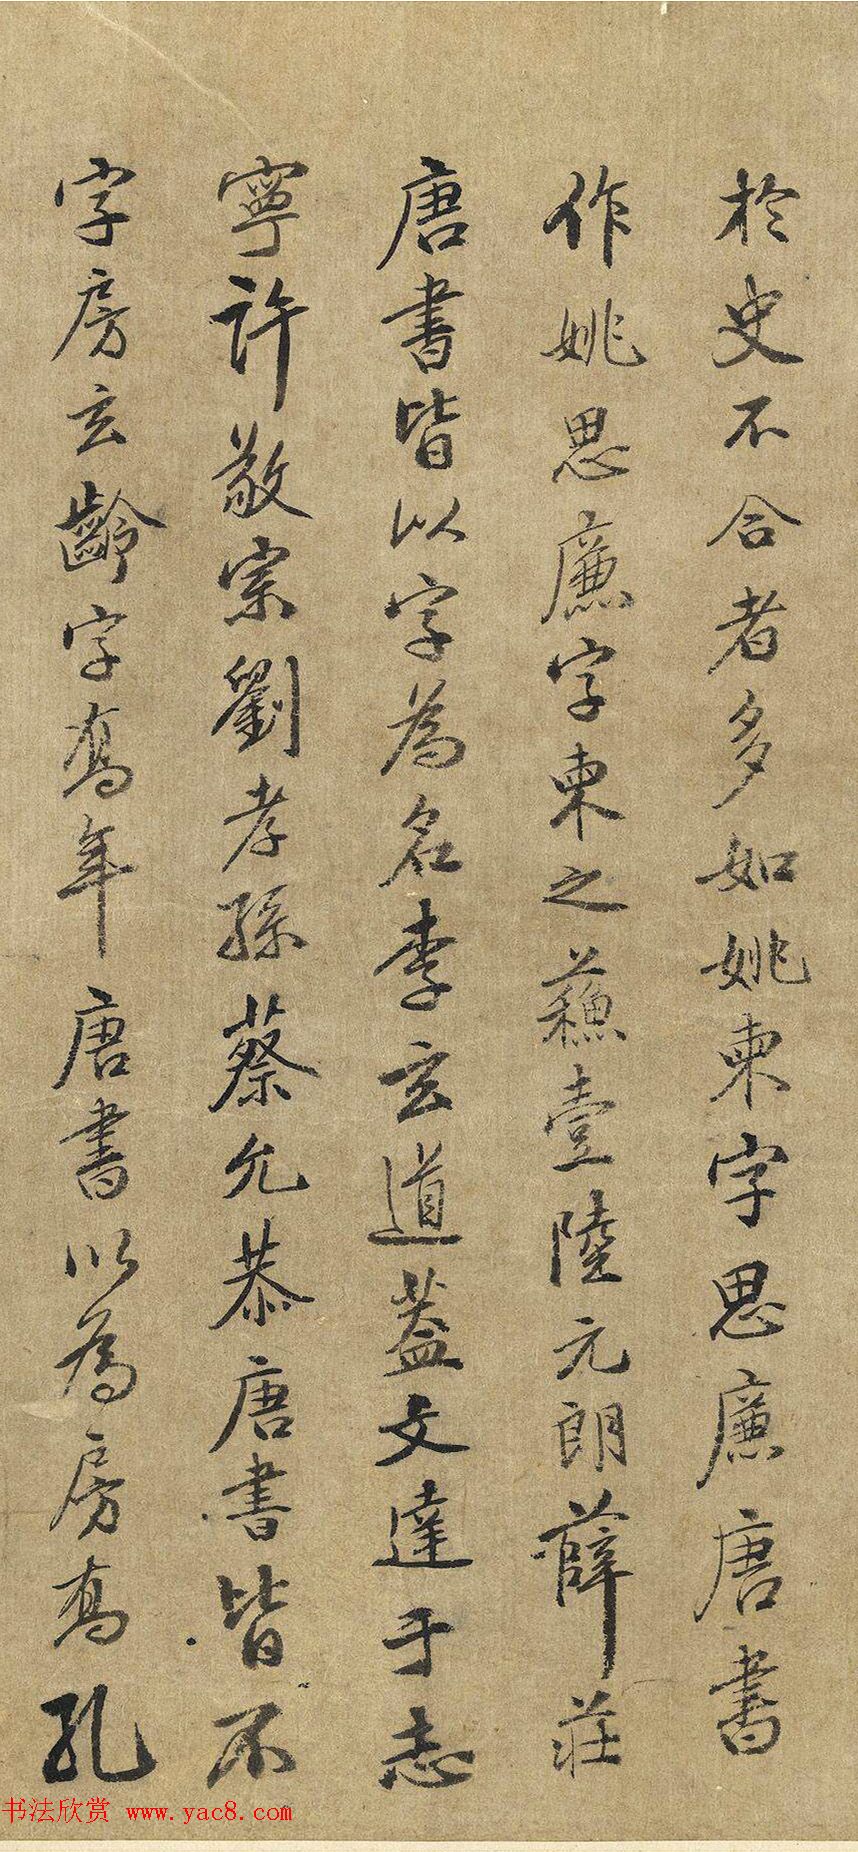 於史不合者多如姚柬字思廉唐書
作姚思廉字柬之蘓壹陸元朗薛莊
唐書皆以字為名李玄道蓋文達于志
寧許敬宗劉孝孫蔡允恭唐書皆不
字房玄齡字喬年唐書以為房喬孔
书法欣赏 www.yac8.com